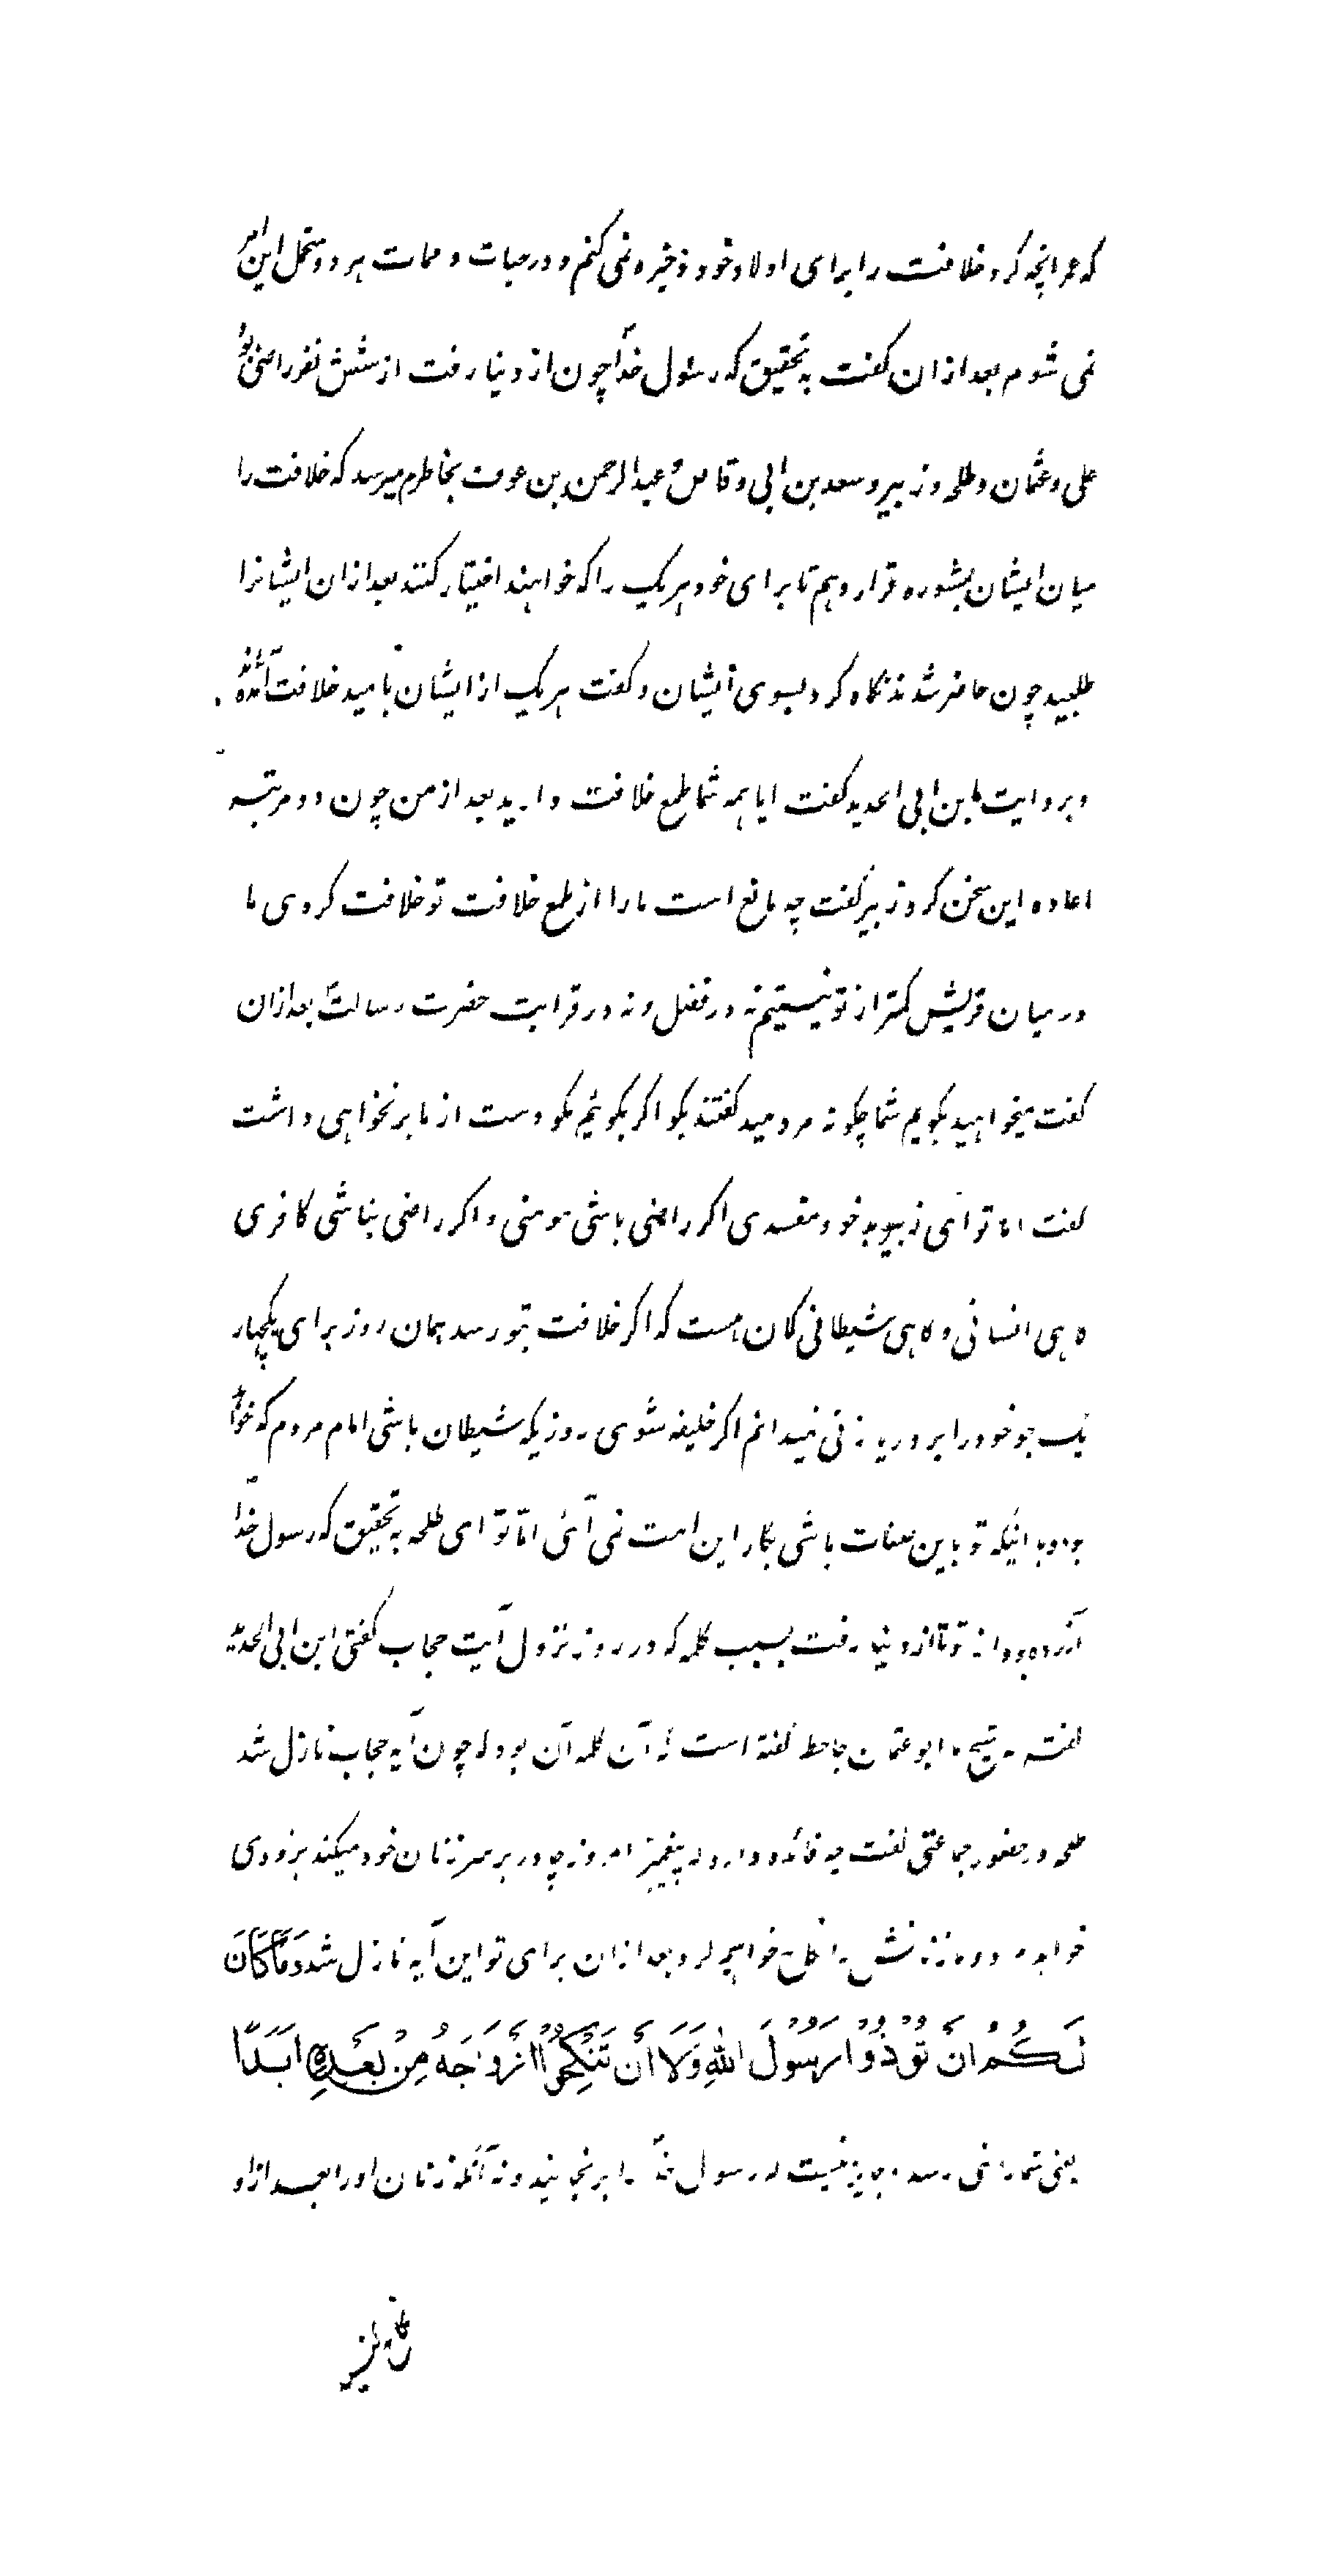 که عمر انچه کرد خلافت را برای اولاد خود ذخیره نمی کنم و در حیات و ممات هر دو متحمل این امر
نمی شوم بعد ازان گفت به تحقیق که رسول خدا چون از دنیا رفت از شش نفر راضی بود
علی و عثمان و طلحه و زبیر و سعد بن ابی وقاص و عبدالرحمن بن عوف بخاطرم میرسد که خلافت را
میان ایشان بشوره قرار دهم تا برای خود هر یک را که خواهند اختیار کنند بعد ازان ایشانرا
طلبید چون حاضر شدند نگاه کرد بسوی ایشان و گفت هر یک از ایشان بامید خلافت آمده اند
و بروایت ابن ابی الحدید گفت ایا همه شما طمع خلافت دارید بعد از من چون دو مرتبه
اعاده این سخن کرد زبیر گفت چه مانع است ما را از طمع خلافت تو خلافت کردی ما
در میان قریش کمتر از تو نیستیم نه در فضل و نه در قرابت حضرت رسالت بعد ازان
گفت میخواهید بگویم شما چگونه مردمید گفتند بگو اگر بگوئیم مگو دست از ما بر نخواهی داشت
گفت اما تو ای زبیر بد خو و مفسدی اگر راضی باشی مومنی و اگر راضی نباشی کافری
گاهی انسانی و گاهی شیطانی گمان هست که اگر خلافت بتو رسد همان روز برای یکچهار
یک جو خود را بر در زنی نمیدانم اگر خلیفه شوی روزیکه شیطان باشی امام مردم که خواهد
بود و با اینکه تو باین صفات باشی بکار این امت نمی آئی اما تو ای طلحه به تحقیق که رسول خدا
آزرده بود از تو تا از دنیا رفت بسبب کلمه که در روز نزول آیت حجاب گفتی ابن ابی الحدید
گفته شیخ ما ابو عثمان جاحظ گفته است که آن کلمه آن بود که چون آیه حجاب نازل شد
طلحه در حضور جماعتی گفت چه فائده دارد که پیغمبر امروز چادر بر سر زنان خود میکند بزودی
خواهد مرد و ما زنانش را نکاح خواهیم کرد بعد ازان برای تو این آیه نازل شد وَمَا كَانَ
لَكُمْ اَنْ تُؤْذُوْا رَسُوْلَ اللّٰهِ وَلَا اَنْ تَنْكِحُوْا اَزْوَاجَهُ مِنْ بَعْدِهِ اَبَدًا
یعنی شما را نمی رسد و جایز نیست که رسول خدا را برنجانید و نه آنکه زنان او را بعد از او